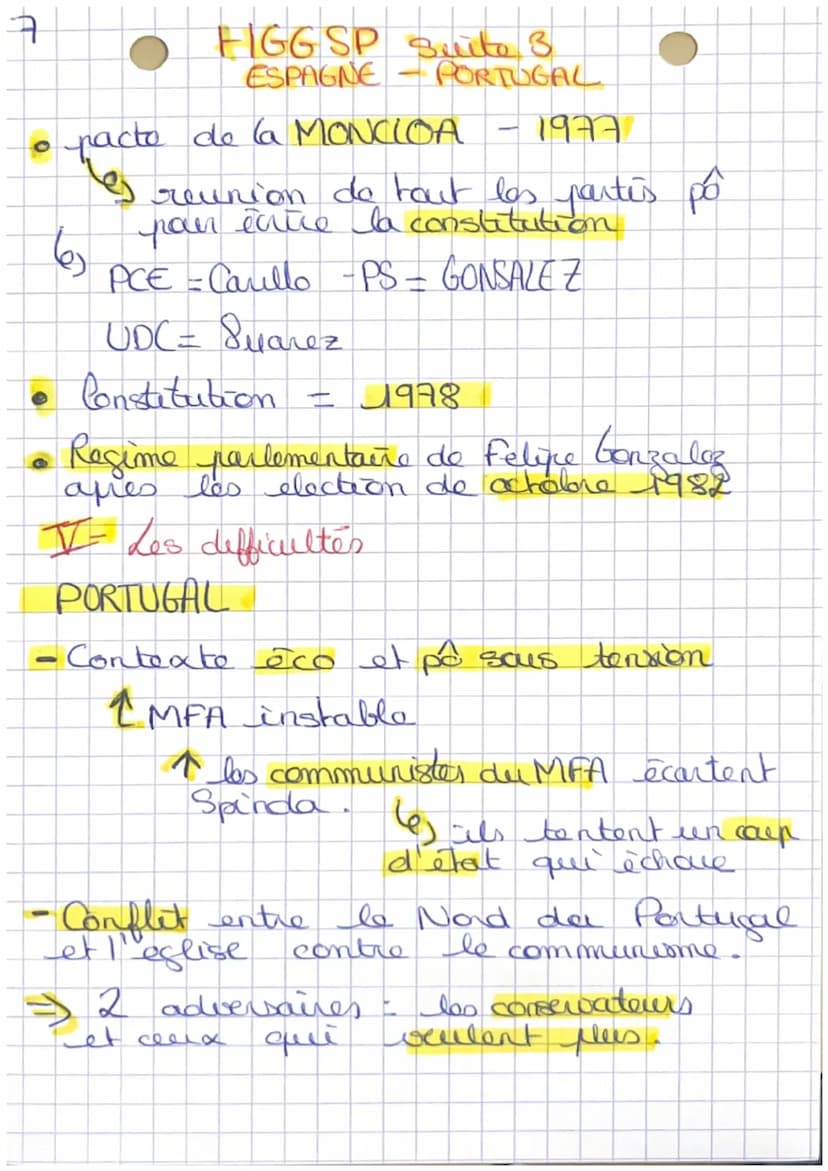 7
HGGSP Suite 3
ESPAGNE - PORTUGAL
• pacte de la MONCLOA - 1977
↳ reunion de tout les partis pô
pour écrire la constitution
↳ PCE = Carullo - PS = GONSALEZ
UDC = Suarez
• Constitution = 1978
• Regime parlementaire de Felipe Gonzalez
apres les election de octobre 1982
V - Les difficultés
PORTUGAL
- Contexte éco et pô sous tension
↑ MFA instable
↑ les communistes du MFA écartent
Spinda.
↳ ils tentent un coup
d'état qui échoue
- Conflit entre le Nord du Portugal
et l'eglise contre le communisme.
⇒ 2 adversaires : les conservateurs
et ceux qui veulent plus.